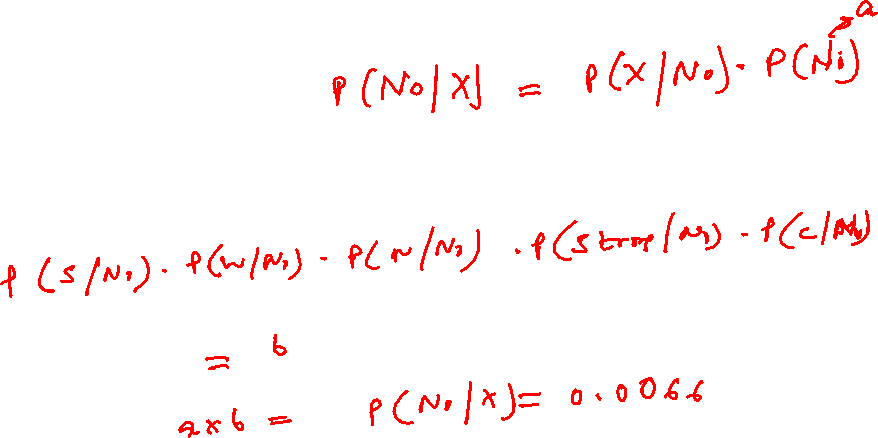 a
P(No/X) = P(X/No) · P(No)
P(S/No) · P(W/No) · P(N/No) · P(Strong/No) · P(C/No)
= b
a x b = P(No/X) = 0.0066